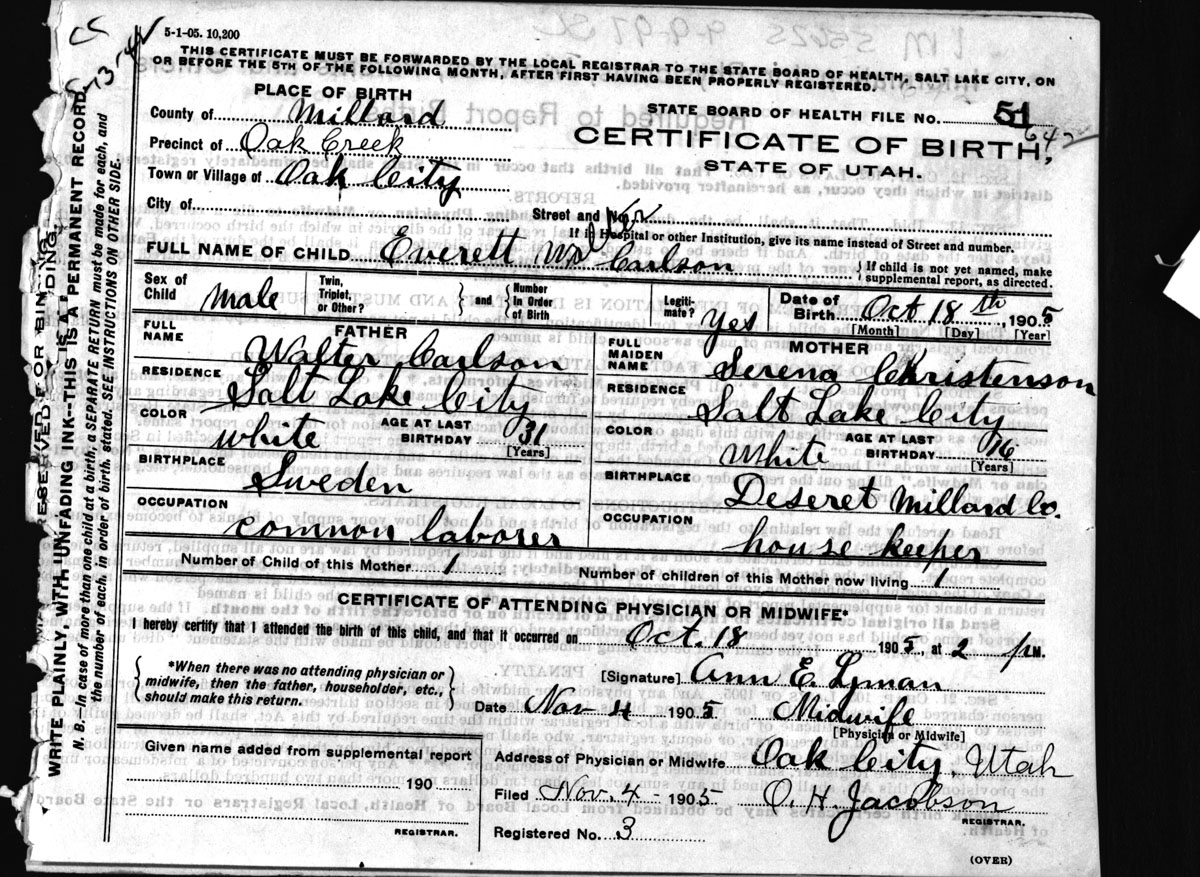 5-1-05. 10,200
THIS CERTIFICATE MUST BE FORWARDED BY THE LOCAL REGISTRAR TO THE STATE BOARD OF HEALTH, SALT LAKE CITY, ON
OR BEFORE THE 5TH OF THE FOLLOWING MONTH, AFTER FIRST HAVING BEEN PROPERLY REGISTERED.
PLACE OF BIRTH
County of Millard
Precinct of Oak Creek
Town or Village of Oak City
City of
STATE BOARD OF HEALTH FILE No. 51
642
CERTIFICATE OF BIRTH,
STATE OF UTAH.
Street and No.
If in Hospital or other Institution, give its name instead of Street and number.
FULL NAME OF CHILD Everett Carlson
If child is not yet named, make
supplemental report, as directed.
Sex of Child male
Twin, Triplet, or Other?
and
Number In Order of Birth
Legiti-mate? Yes
Date of Birth Oct 18th, 1905
[Month] [Day] [Year]
FATHER
FULL NAME Walter Carlson
RESIDENCE Salt Lake City
COLOR white
AGE AT LAST BIRTHDAY 31
[Years]
BIRTHPLACE Sweden
OCCUPATION common laborer
MOTHER
FULL MAIDEN NAME Serena Christenson
RESIDENCE Salt Lake City
COLOR White
AGE AT LAST BIRTHDAY 16
[Years]
BIRTHPLACE Deseret Millard Co.
OCCUPATION house keeper
Number of Child of this Mother 1
Number of children of this Mother now living 1
CERTIFICATE OF ATTENDING PHYSICIAN OR MIDWIFE*
I hereby certify that I attended the birth of this child, and that it occurred on Oct. 18 1905, at 2 P.M.
*When there was no attending physician or
midwife, then the father, householder, etc.,
should make this return.
[Signature] Ann E. Lyman
Date Nov 4 1905 Midwife
[Physician or Midwife]
Given name added from supplemental report
190
REGISTRAR.
Address of Physician or Midwife Oak City, Utah
Filed Nov. 4 - 1905 O. H. Jacobson
REGISTRAR.
Registered No. 3
(OVER)
MARGIN RESERVED FOR BINDING.
WRITE PLAINLY, WITH UNFADING INK--THIS IS A PERMANENT RECORD.
N. B.--In case of more than one child at a birth, a SEPARATE RETURN must be made for each, and
the number of each, in order of birth, stated. SEE INSTRUCTIONS ON OTHER SIDE.